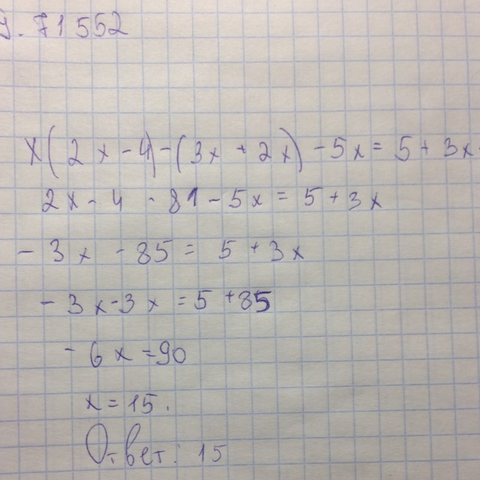 71552
x(2x-4)-(3x+2x)-5x=5+3x
2x-4-81-5x=5+3x
-3x-85=5+3x
-3x-3x=5+85
-6x=90
x=15.
Ответ: 15